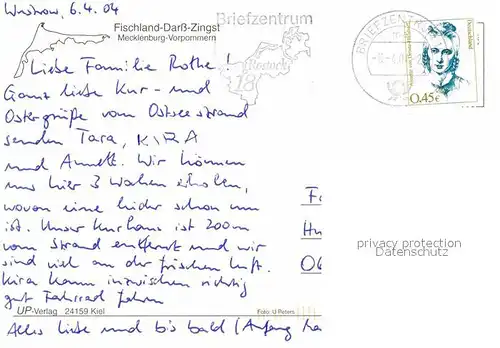 Wustrow, 6.4.04
Fischland-Darß-Zingst
Mecklenburg-Vorpommern
Briefzentrum
Rostock
18
BRIEFZENTRUM
0.45€
Liebe Familie Rothe!
Ganz liebe Kur- und
Ostergrüße vom Ostseestrand
senden Tara, KIRA
und Annett. Wir können
uns hier 3 Wochen erholen,
wovon eine leider schon um
ist. Unser Kurhaus ist 200m
vom Strand entfernt und wir
sind viel an der frischen Luft.
Kira kann inzwischen richtig
gut Fahrrad fahren
UP-Verlag 24159 Kiel
Foto: U Peters
Alles Liebe und bis bald (Anfang
Fa
Hu
06
privacy protection
Datenschutz